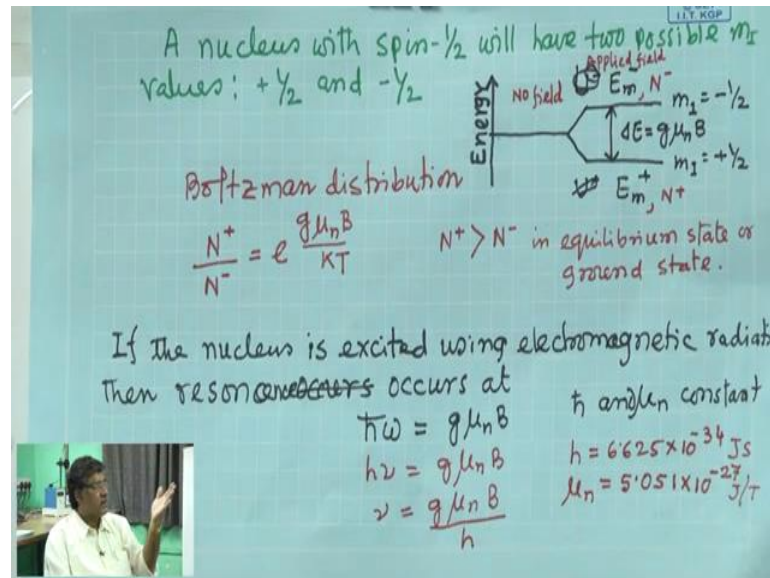 I.I.T. KGP
A nucleus with spin-½ will have two possible mI
values: +½ and -½
Applied field
No field
Em⁻, N⁻
mI = -½
Energy
ΔE = gμnB
mI = +½
Em⁺, N⁺
Boltzman distribution
N⁺/N⁻ = e^(gμnB/KT)
N⁺ > N⁻ in equilibrium state or
ground state.
If the nucleus is excited using electromagnetic radiati
Then reson occurs at
ħω = gμnB
hν = gμnB
ν = gμnB/h
ħ and μn constant
h = 6.625×10⁻³⁴ JS
μn = 5.051×10⁻²⁷ J/T